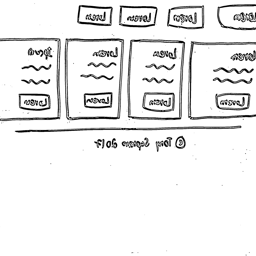 Lorem Lorem Lorem Lorem
Lorem Lorem Lorem Ipsum
Lorem Lorem Lorem Lorem
© 2017